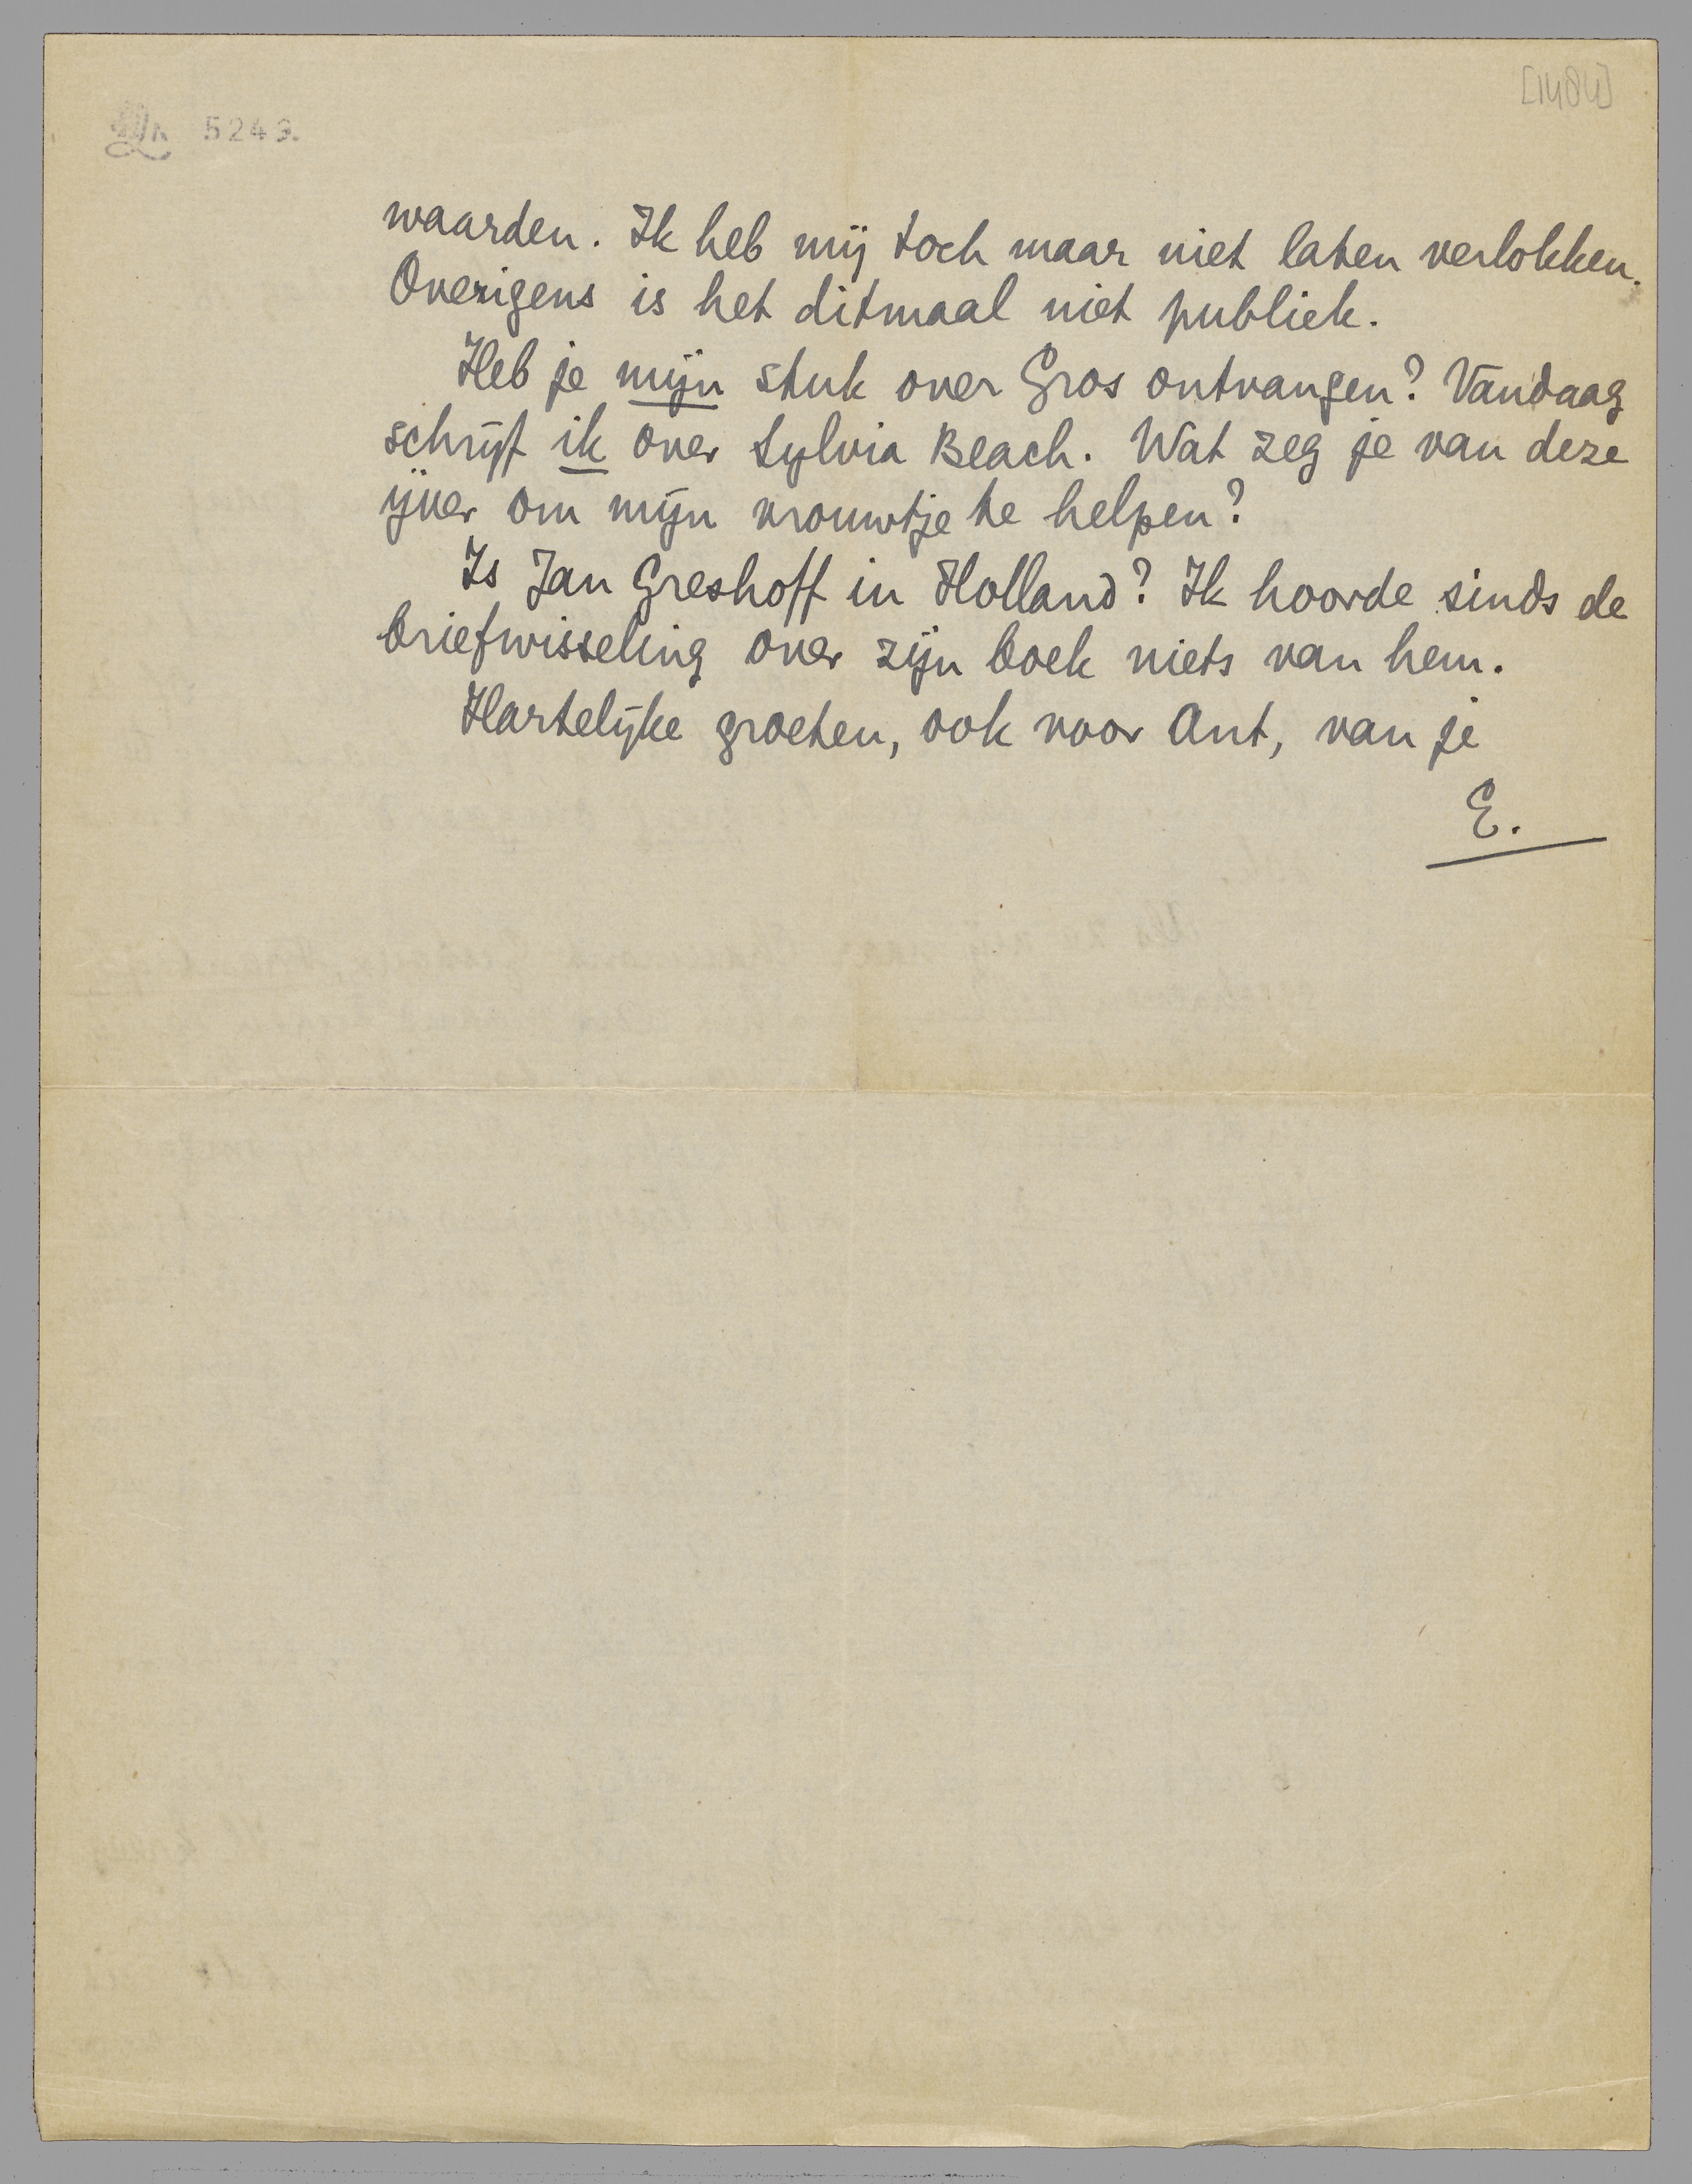 [1484]
5249.
waarden. Ik heb mij toch maar niet laten verlokken.
Overigens is het ditmaal niet publiek.
Heb je mijn stuk over Gros ontvangen? Vandaag
schrijf ik over Sylvia Beach. Wat zeg je van deze
ijver om mijn vrouwtje te helpen?
Is Jan Greshoff in Holland? Ik hoorde sinds de
briefwisseling over zijn boek niets van hem.
Hartelijke groeten, ook voor Ant, van je
E.